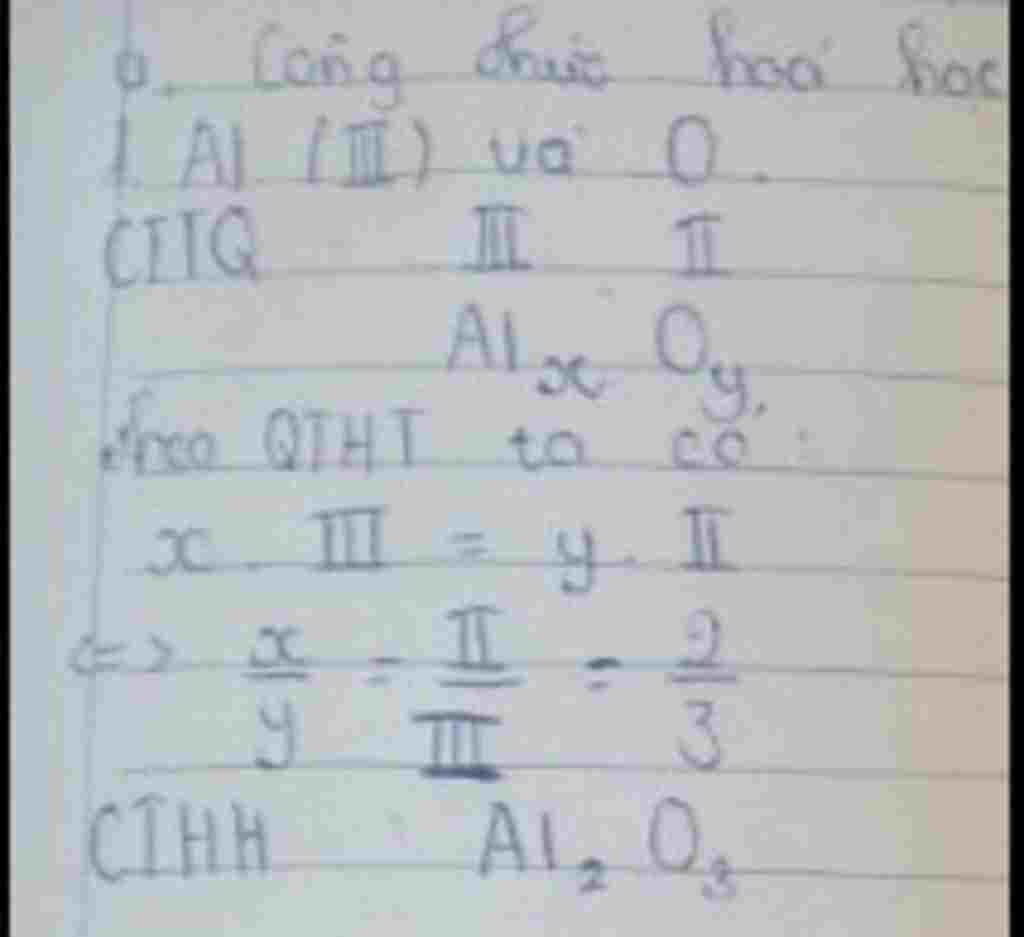 a. Công thức hoá học
1. Al (III) và O.
CTTQ III II
Alx Oy.
theo QTHT ta có:
x . III = y . II
<=> x/y = II/III = 2/3
CTHH Al₂ O₃